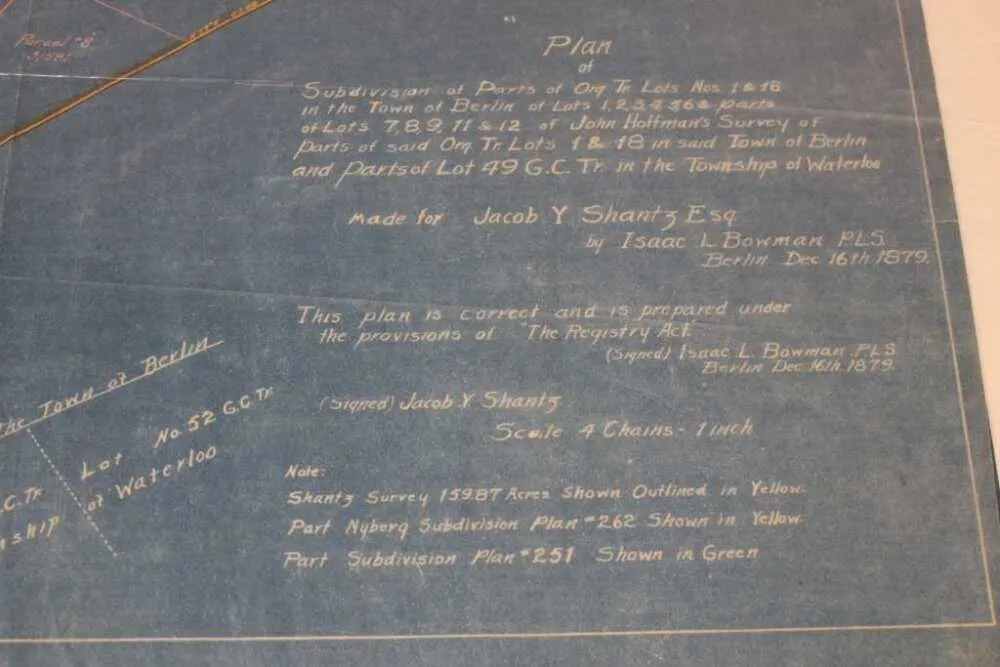 Parcel #8
Plan
of
Subdivision of Parts of Org Tr. Lots Nos. 1 & 18
in the Town of Berlin of Lots 1,2,3,4,5,6 & parts
of Lots 7,8,9,11 & 12 of John Hoffman's Survey of
parts of said Org Tr Lots 1 & 18 in said Town of Berlin
and Parts of Lot 49 G.C. Tr. in the Township of Waterloo
Made for Jacob Y Shantz Esq
by Isaac L Bowman P.L.S.
Berlin Dec 16th 1879.
This plan is correct and is prepared under
the provisions of "The Registry Act."
(Signed) Isaac L. Bowman P.L.S.
Berlin Dec 16th 1879.
(Signed) Jacob Y. Shantz
Scale 4 Chains - 1 inch
Note:
Shantz Survey 159.87 Acres Shown Outlined in Yellow.
Part Nyberg Subdivision Plan #262 Shown in Yellow.
Part Subdivision Plan #251 Shown in Green
The Town of Berlin
Lot No. 52 G.C. Tr.
of Waterloo
.C. Tr.
ship